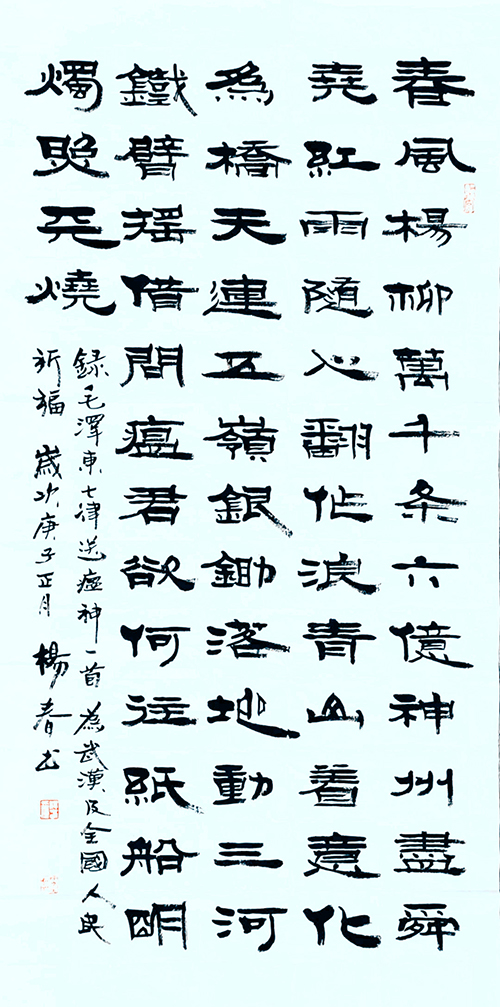 春風楊柳萬千条六億神州盡舜
堯紅雨隨心翻作浪青山着意化
為橋天連五嶺銀鋤落地動三河
鐵臂摇借問瘟君欲何往紙船明
燭照天燒
録毛澤東七律送瘟神一首為武漢及全國人民
祈福 歲次庚子正月 楊春书